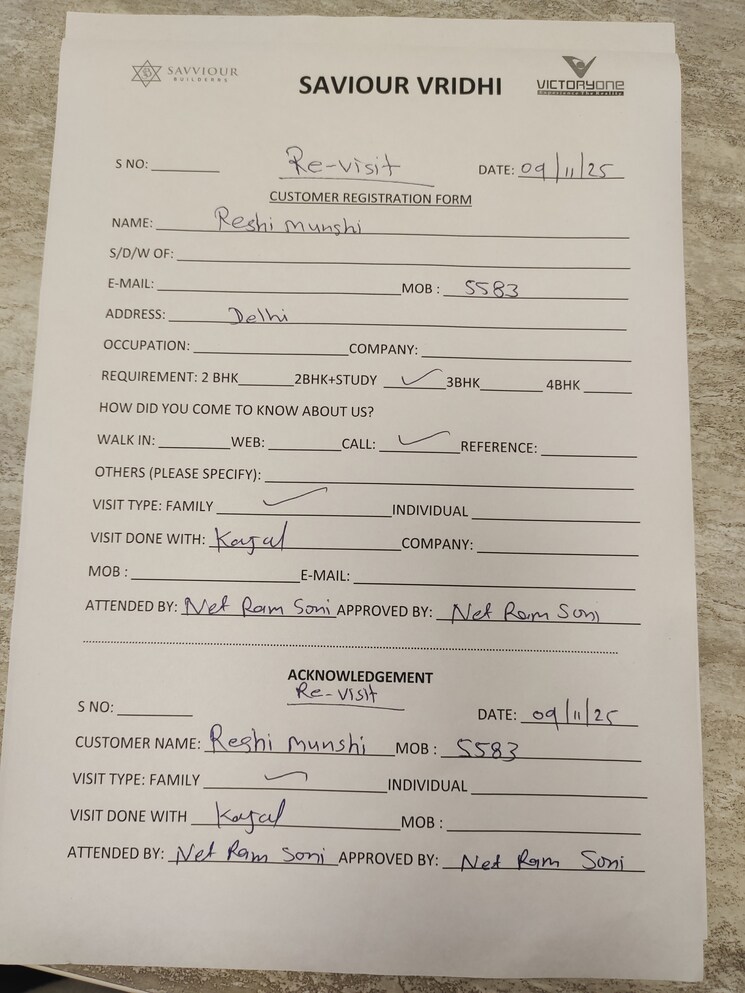 SAVVIOUR
BUILDERRS
SAVIOUR VRIDHI
VICTORYONE
Experience The Reality
S NO: Re-visit DATE: 09/11/25
CUSTOMER REGISTRATION FORM
NAME: Reshi munshi
S/D/W OF:
E-MAIL: MOB : 5583
ADDRESS: Delhi
OCCUPATION: COMPANY:
REQUIREMENT: 2 BHK 2BHK+STUDY ✓ 3BHK 4BHK
HOW DID YOU COME TO KNOW ABOUT US?
WALK IN: WEB: CALL: ✓ REFERENCE:
OTHERS (PLEASE SPECIFY):
VISIT TYPE: FAMILY ✓ INDIVIDUAL
VISIT DONE WITH: Kajal COMPANY:
MOB : E-MAIL:
ATTENDED BY: Net Ram Soni APPROVED BY: Net Ram Soni
ACKNOWLEDGEMENT
Re-visit
S NO: DATE: 09/11/25
CUSTOMER NAME: Reshi munshi MOB : 5583
VISIT TYPE: FAMILY ✓ INDIVIDUAL
VISIT DONE WITH Kajal MOB :
ATTENDED BY: Net Ram Soni APPROVED BY: Net Ram Soni